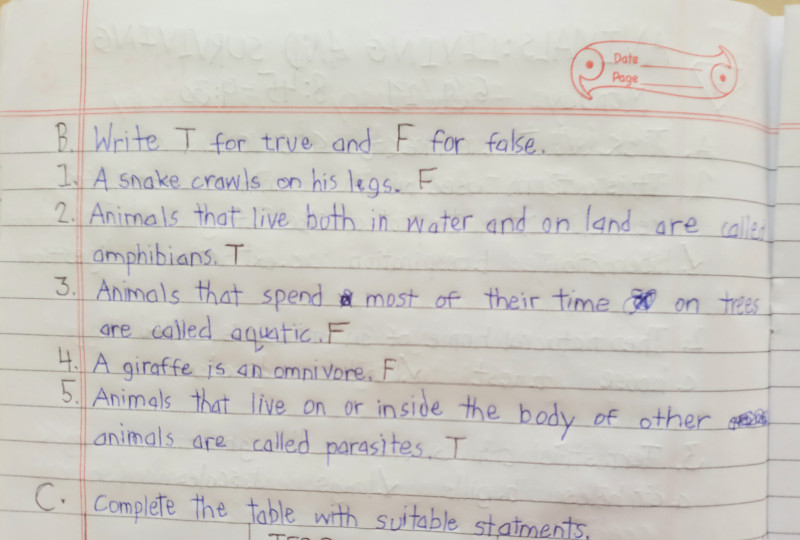 Date
Page
B. Write T for true and F for false.
1. A snake crawls on his legs. F
2. Animals that live both in water and on land are called
amphibians. T
3. Animals that spend most of their time on trees
are called aquatic. F
4. A giraffe is an omnivore. F
5. Animals that live on or inside the body of other
animals are called parasites. T
C. Complete the table with suitable statments.